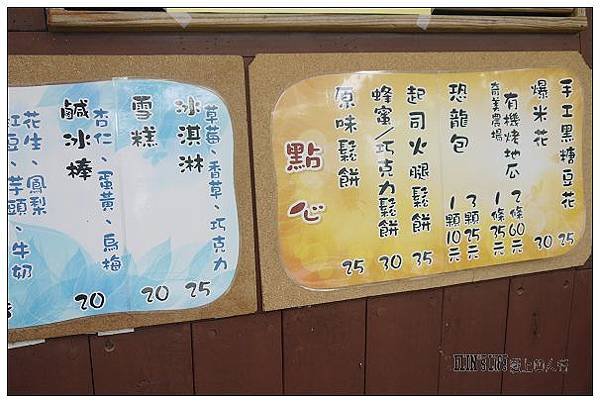 手工黑糖豆花 25
爆米花 30
有機烤地瓜 2條60元
奇美農場 1條35元
恐龍包 3顆25元
1顆10元
起司火腿鬆餅 35
蜂蜜/巧克力鬆餅 30
原味鬆餅 25
點心
冰淇淋 草莓、香草、巧克力 25
雪糕 20
鹹冰棒 杏仁、蛋黃、烏梅 20
花生、鳳梨
紅豆、芋頭、牛奶